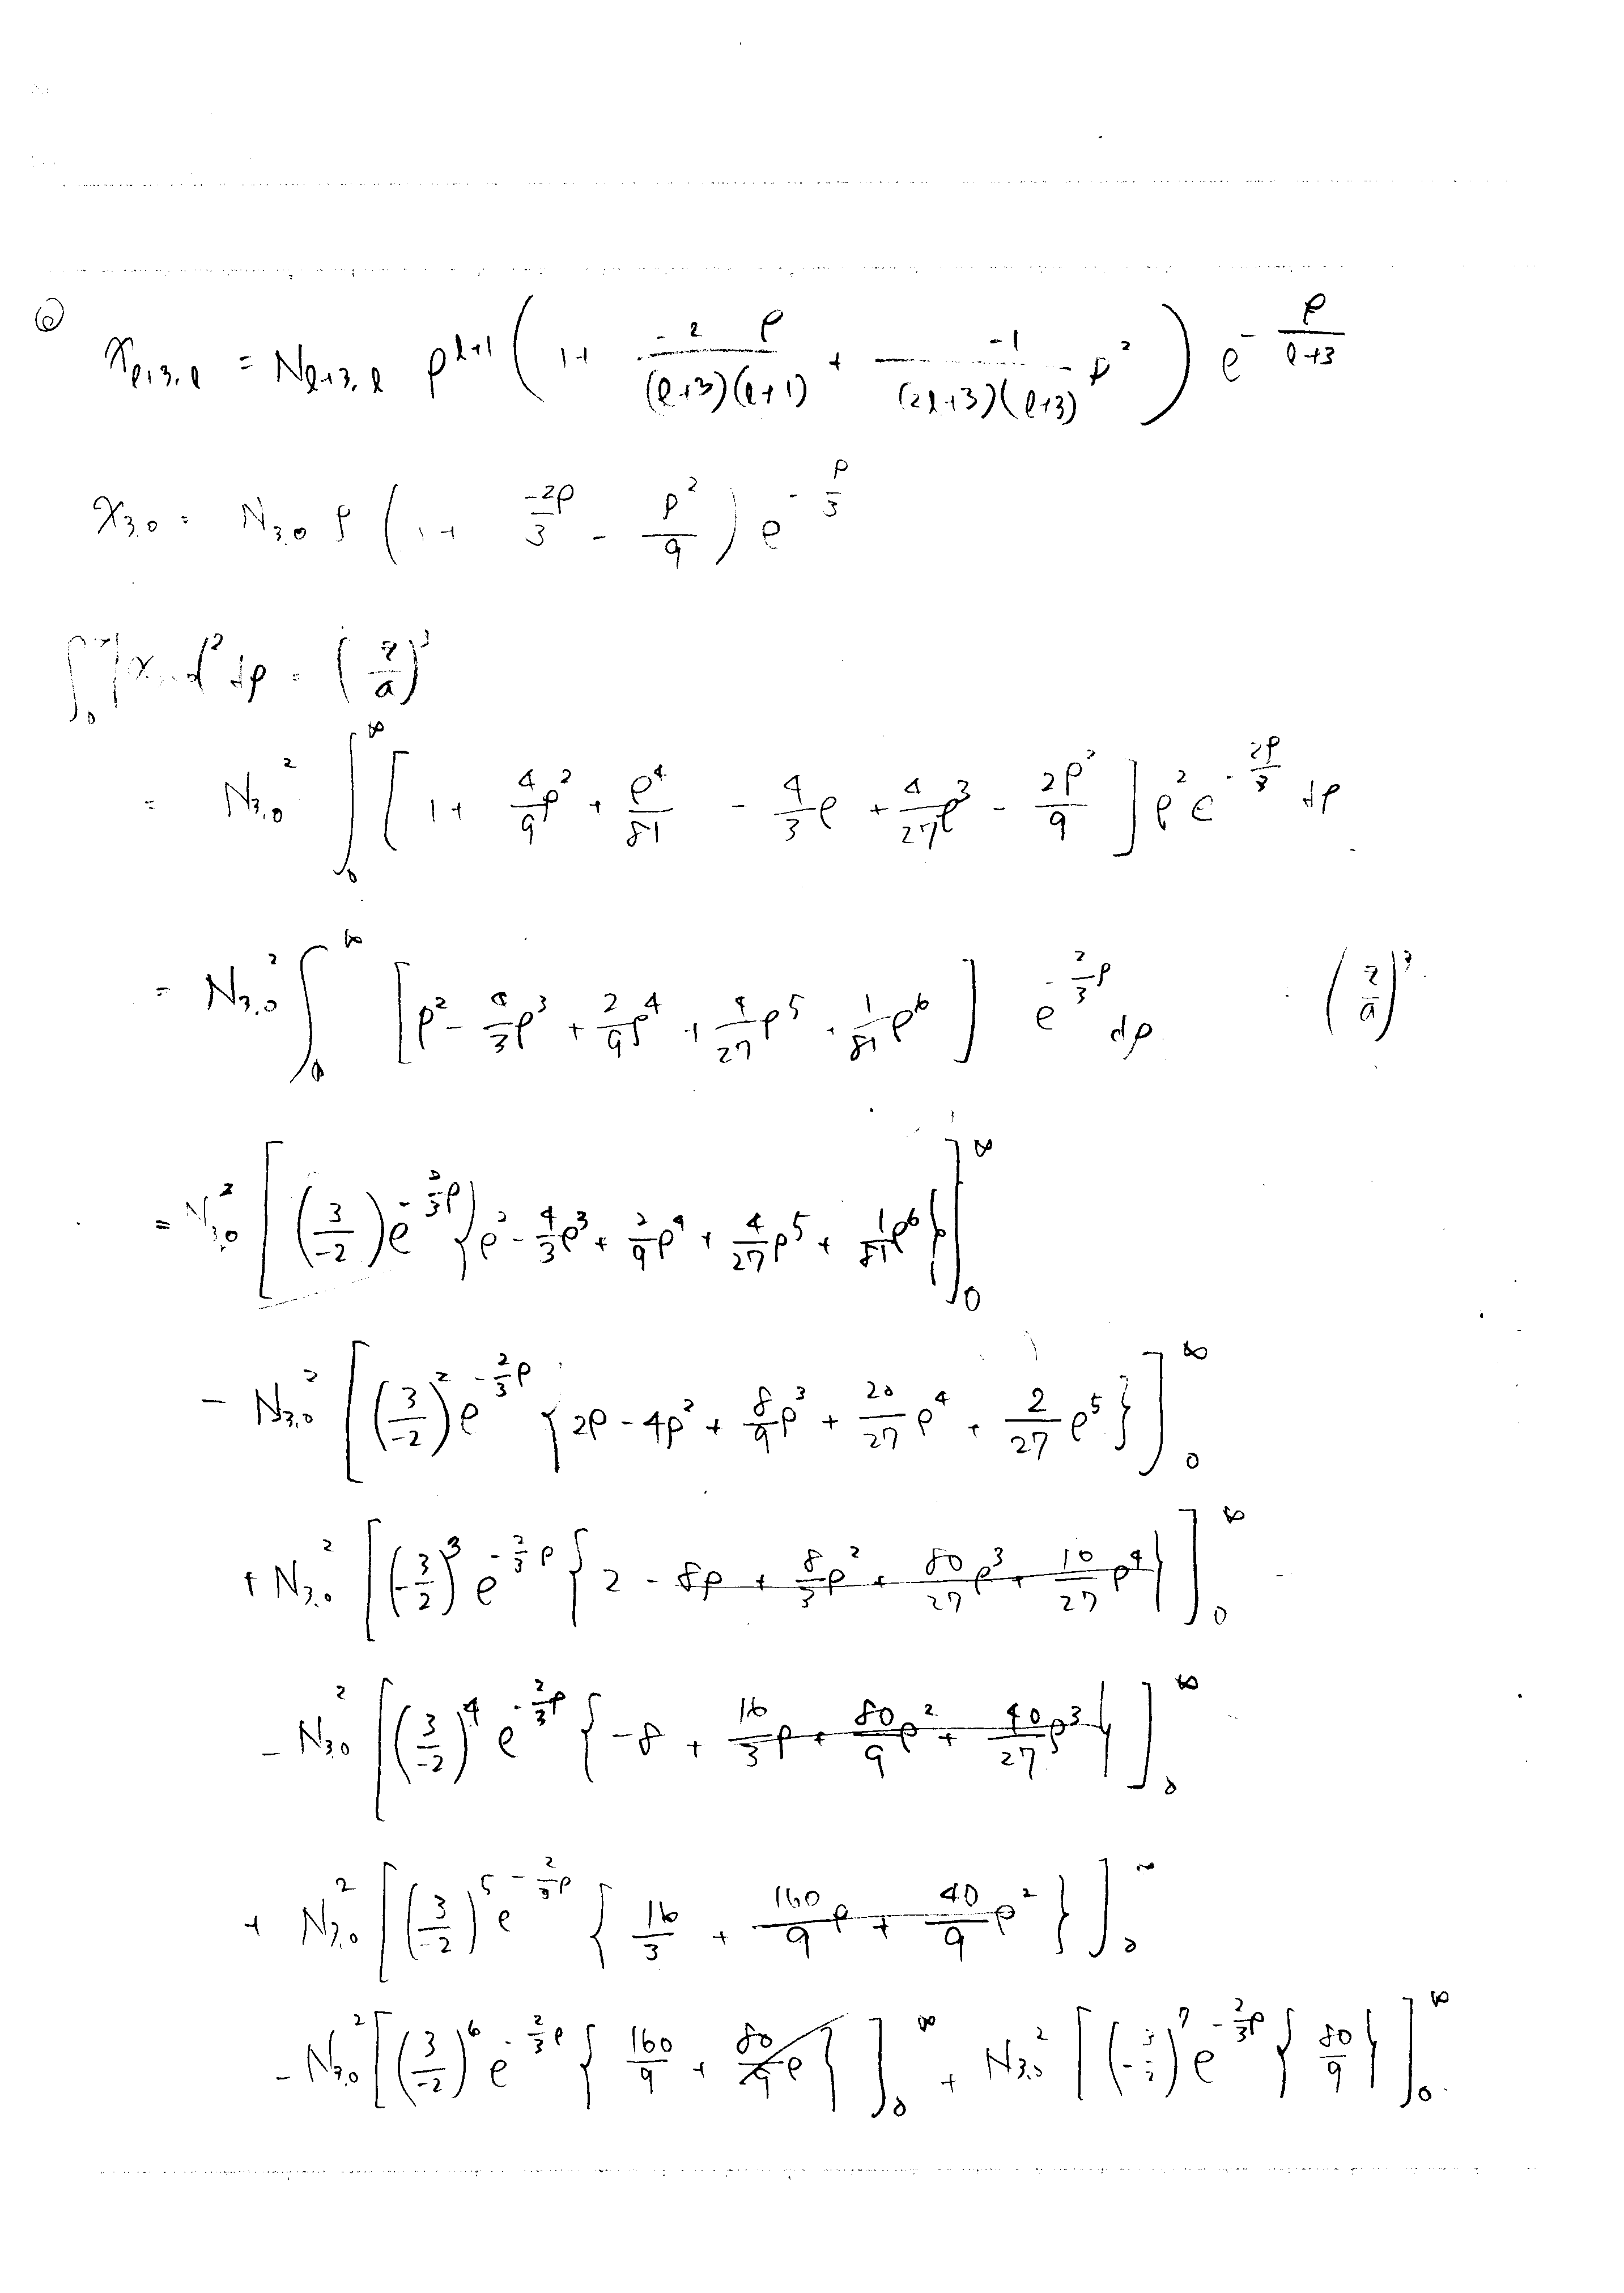 ⑥ χ_{ℓ+3,ℓ} = N_{ℓ+3,ℓ} ρ^{ℓ+1} ( 1 + \frac{-2 ρ}{(ℓ+3)(ℓ+1)} + \frac{-1}{(2ℓ+3)(ℓ+3)} ρ^2 ) e^{-\frac{ρ}{ℓ+3}}
χ_{3,0} = N_{3,0} ρ ( 1 + \frac{-2ρ}{3} - \frac{ρ^2}{9} ) e^{-\frac{ρ}{3}}
∫_0^∞ |χ_{3,0}|^2 dρ = (\frac{z}{a})^3
= N_{3,0}^2 ∫_0^∞ [ 1 + \frac{4}{9}ρ^2 + \frac{ρ^4}{81} - \frac{4}{3}ρ + \frac{4}{27}ρ^3 - \frac{2ρ^2}{9} ] ρ^2 e^{-\frac{2ρ}{3}} dρ
= N_{3,0}^2 ∫_0^∞ [ ρ^2 - \frac{4}{3}ρ^3 + \frac{2}{9}ρ^4 + \frac{4}{27}ρ^5 + \frac{1}{81}ρ^6 ] e^{-\frac{2}{3}ρ} dρ = (\frac{z}{a})^3
= N_{3,0}^2 [ (\frac{3}{-2}) e^{-\frac{2}{3}ρ} { ρ^2 - \frac{4}{3}ρ^3 + \frac{2}{9}ρ^4 + \frac{4}{27}ρ^5 + \frac{1}{81}ρ^6 } ]_0^∞
- N_{3,0}^2 [ (\frac{3}{-2})^2 e^{-\frac{2}{3}ρ} { 2ρ - 4ρ^2 + \frac{8}{9}ρ^3 + \frac{20}{27}ρ^4 + \frac{2}{27}ρ^5 } ]_0^∞
+ N_{3,0}^2 [ (-\frac{3}{2})^3 e^{-\frac{2}{3}ρ} { 2 - 8ρ + \frac{8}{3}ρ^2 + \frac{80}{27}ρ^3 + \frac{10}{27}ρ^4 } ]_0^∞
- N_{3,0}^2 [ (\frac{3}{-2})^4 e^{-\frac{2}{3}ρ} { -8 + \frac{16}{3}ρ + \frac{80}{9}ρ^2 + \frac{40}{27}ρ^3 } ]_0^∞
+ N_{3,0}^2 [ (\frac{3}{-2})^5 e^{-\frac{2}{3}ρ} { \frac{16}{3} + \frac{160}{9}ρ + \frac{40}{9}ρ^2 } ]_0^∞
- N_{3,0}^2 [ (\frac{3}{-2})^6 e^{-\frac{2}{3}ρ} { \frac{160}{9} + \frac{80}{9}ρ } ]_0^∞ + N_{3,0}^2 [ (-\frac{3}{2})^7 e^{-\frac{2}{3}ρ} { \frac{80}{9} } ]_0^∞